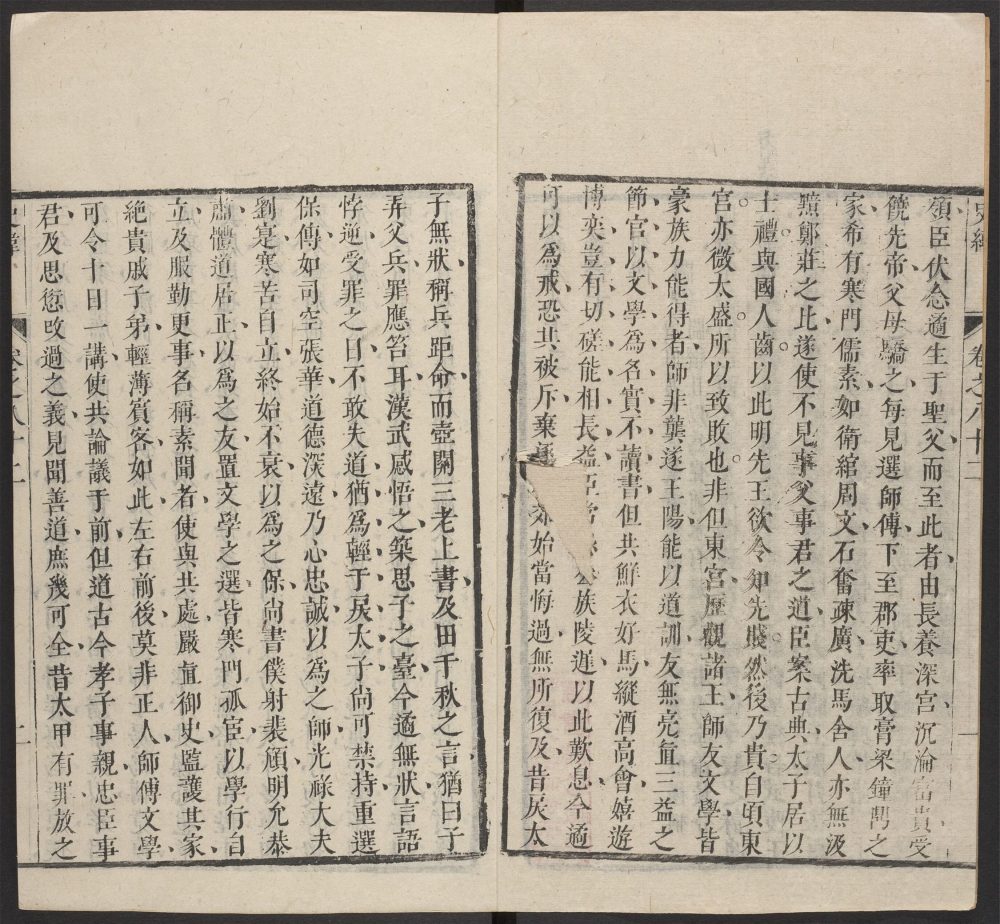 領臣伏念遹生于聖父而至此者由長養深宮沉淪富貴受
饒先帝父母驕之每見選師傅下至郡吏率取膏粱鐘鼎之
家希有寒門儒素如衛綰周文石奮疎廣洗馬舍人亦無汲
黯鄭莊之比遂使不見事父事君之道臣案古典太子居以
士禮與國人齒以此明先王欲令知先賤然後乃貴自頃東
宮亦微太盛所以致敗也非但東宮歷觀諸王師友文學皆
豪族力能得者師非龔遂王陽能以道訓友無亮直三益之
節官以文學爲名實不讀書但共鮮衣好馬縱酒高會嬉遊
博奕豈有切磋能相長益臣常 公族陵遲以此歎息今遹
可以爲戒恐其被斥棄逐 郊始當悔過無所復及昔戾太
卷之八十二
一
子無狀稱兵距命而壺關三老上書及田千秋之言猶曰子
弄父兵罪應笞耳漢武感悟之築思子之臺今遹無狀言語
悖逆受罪之日不敢失道猶爲輕于戾太子尚可禁持重選
保傅如司空張華道德深遠乃心忠誠以爲之師光祿大夫
劉寔寒苦自立終始不衰以爲之保尚書僕射裴頠明允恭
肅體道居正以爲之友置文學之選皆寒門孤宦以學行自
立及服勤更事名稱素聞者使與共處嚴直御史監護其家
絕貴戚子弟輕薄賓客如此左右前後莫非正人師傅文學
可令十日一講使共論議于前但道古今孝子事親忠臣事
君及思愆改過之義見聞善道庶幾可全昔太甲有罪放之
卷之八十二
二